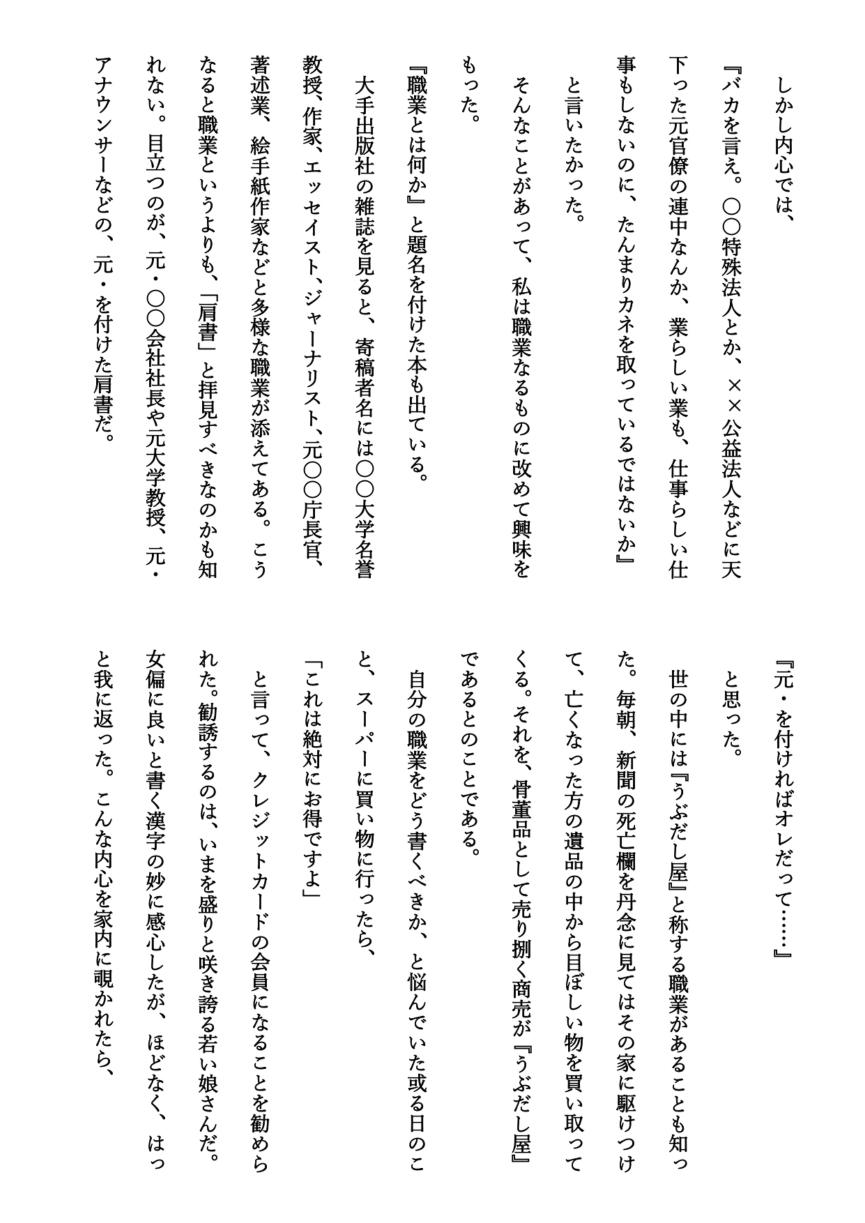 しかし内心では、
『バカを言え。〇〇特殊法人とか、××公益法人などに天
下った元官僚の連中なんか、業らしい業も、仕事らしい仕
事もしないのに、たんまりカネを取っているではないか』
　と言いたかった。
　そんなことがあって、私は職業なるものに改めて興味を
もった。
『職業とは何か』と題名を付けた本も出ている。
　大手出版社の雑誌を見ると、寄稿者名には〇〇大学名誉
教授、作家、エッセイスト、ジャーナリスト、元〇〇庁長官、
著述業、絵手紙作家などと多様な職業が添えてある。こう
なると職業というよりも、「肩書」と拝見すべきなのかも知
れない。目立つのが、元・〇〇会社社長や元大学教授、元・
アナウンサーなどの、元・を付けた肩書だ。
『元・を付ければオレだって……』
　と思った。
　世の中には『うぶだし屋』と称する職業があることも知っ
た。毎朝、新聞の死亡欄を丹念に見てはその家に駆けつけ
て、亡くなった方の遺品の中から目ぼしい物を買い取って
くる。それを、骨董品として売り捌く商売が『うぶだし屋』
であるとのことである。
　自分の職業をどう書くべきか、と悩んでいた或る日のこ
と、スーパーに買い物に行ったら、
「これは絶対にお得ですよ」
　と言って、クレジットカードの会員になることを勧めら
れた。勧誘するのは、いまを盛りと咲き誇る若い娘さんだ。
女偏に良いと書く漢字の妙に感心したが、ほどなく、はっ
と我に返った。こんな内心を家内に覗かれたら、